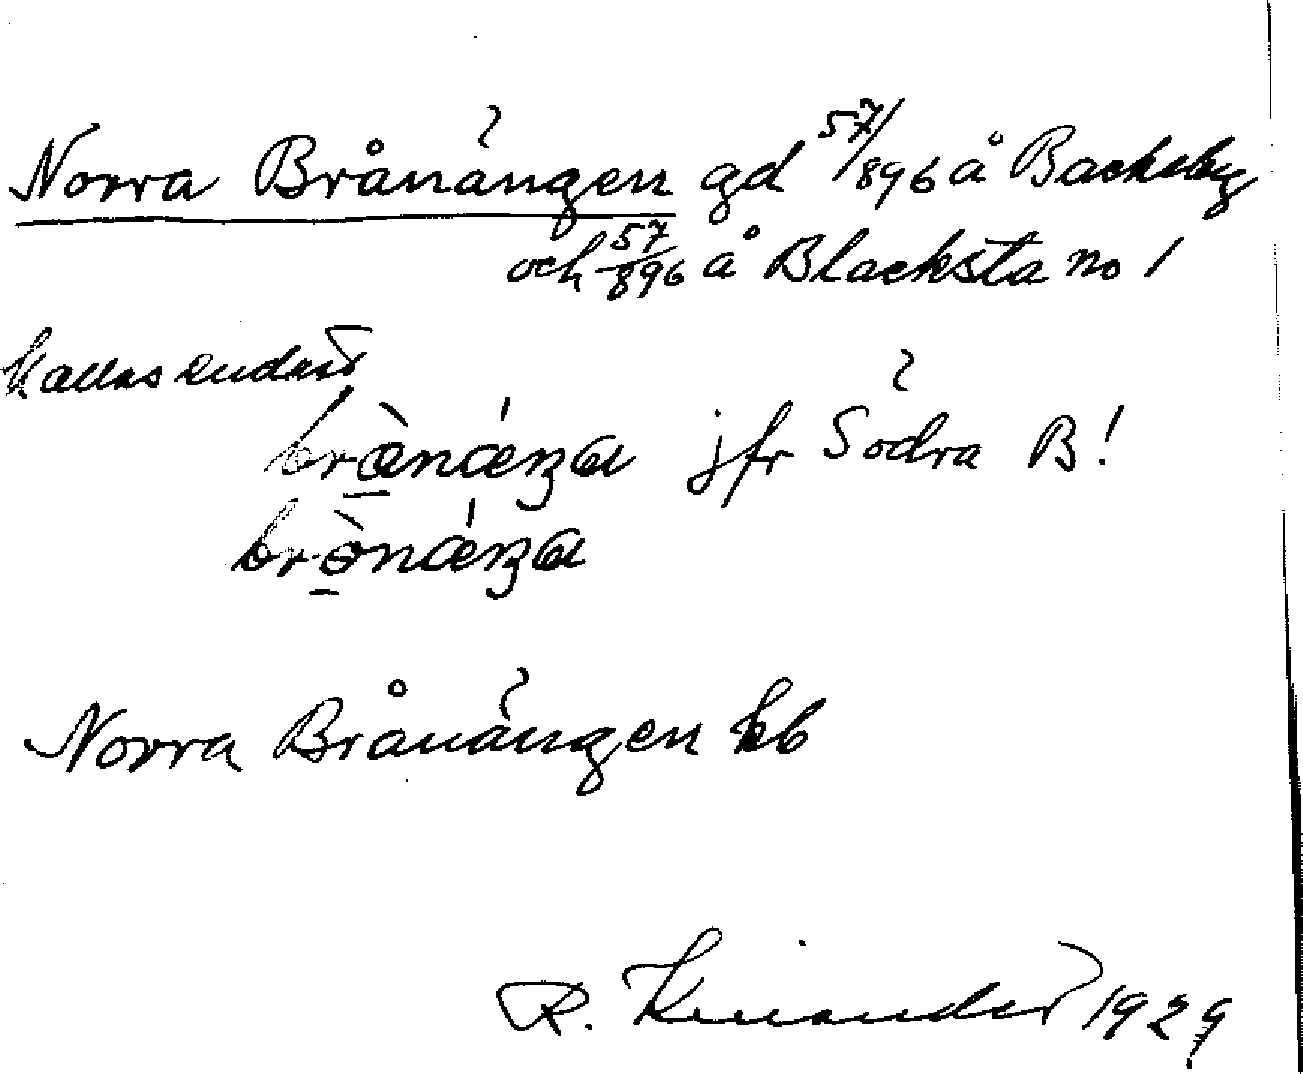 Norra Brånängen gd 57/896 å Backeby
och 57/896 å Blacksta no 1
kallas endast
brånäŋa jfr Södra B!
brònǽŋa
Norra Brånängen kb
R. Kinander 1929